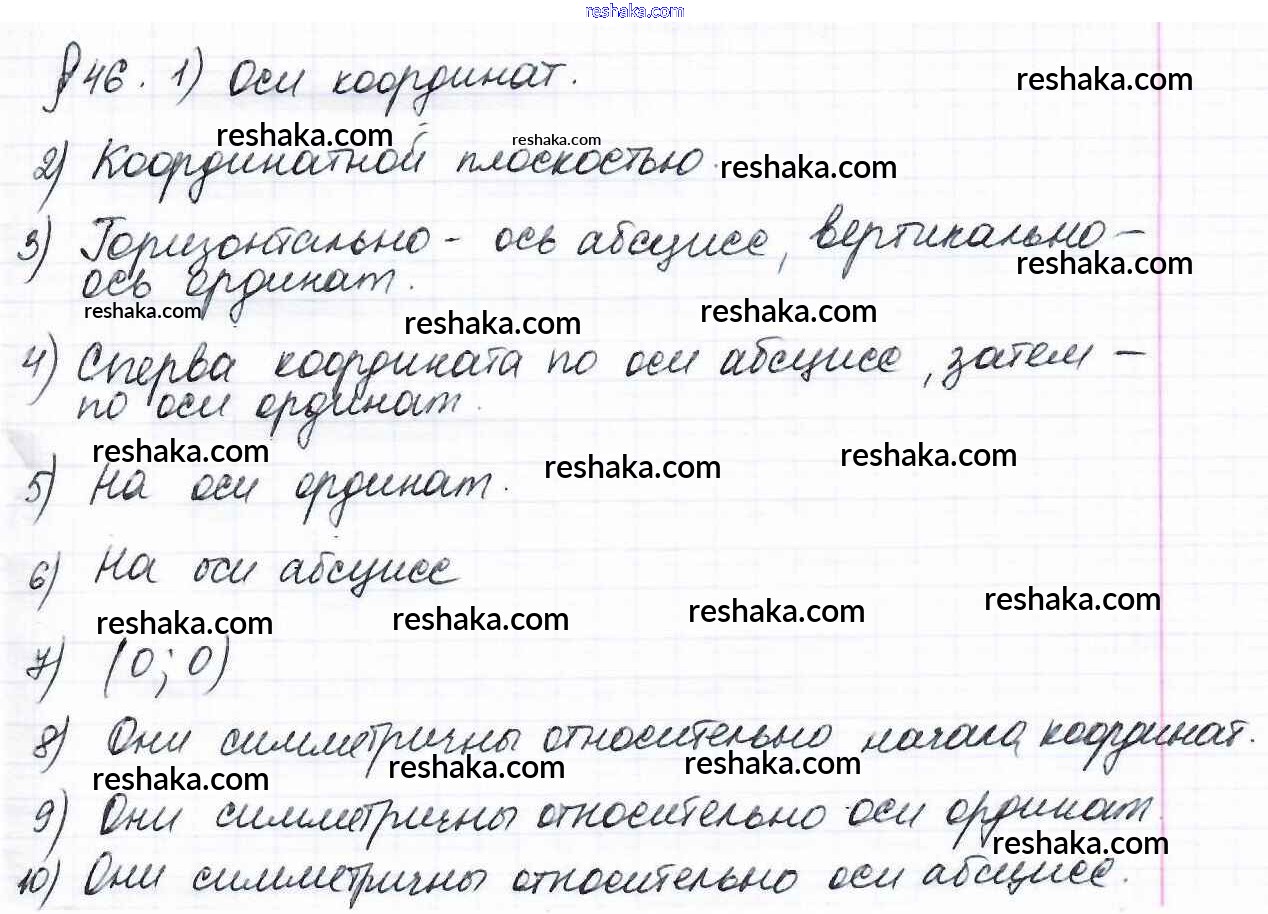 reshaka.com
§ 46. 1) Оси координат.
reshaka.com
reshaka.com
reshaka.com
2) Координатной плоскостью.
reshaka.com
3) Горизонтально - ось абсцисс, вертикально -
reshaka.com
ось ординат.
reshaka.com
reshaka.com
reshaka.com
4) Сперва координата по оси абсцисс, затем -
по оси ординат.
reshaka.com
reshaka.com
reshaka.com
5) На оси ординат.
6) На оси абсцисс
reshaka.com
reshaka.com
reshaka.com
reshaka.com
7) (0; 0)
8) Они симметричны относительно начала координат.
reshaka.com
reshaka.com
reshaka.com
9) Они симметричны относительно оси ординат.
reshaka.com
10) Они симметричны относительно оси абсцисс.